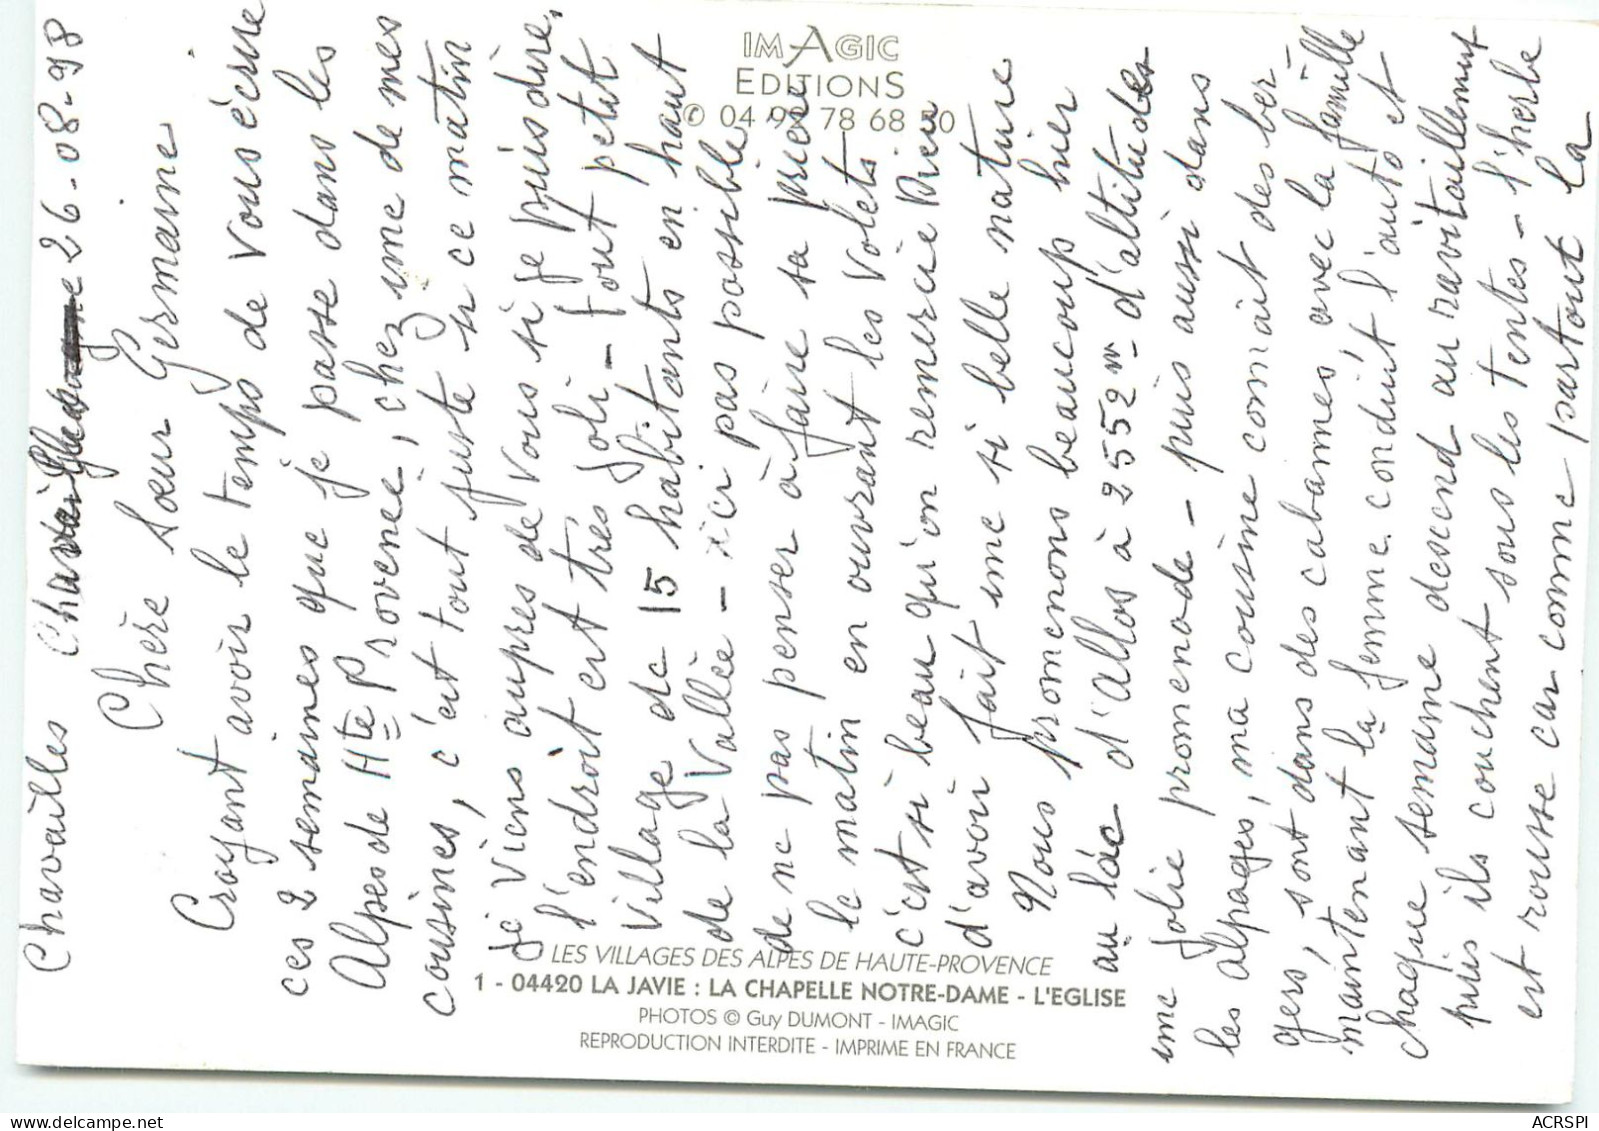 IMAGIC
EDITIONS
✆ 04 92 78 68 70
Chavailles 26-08-98
Chère Sœur Germaine
Croyant avoir le temps de vous écrire
ces 2 semaines que je passe dans les
Alpes de Hte Provence, chez une de mes
cousines, c'est tout juste si ce matin
je viens aupres de vous si je puis dire,
l'endroit est très joli - tout petit
village de 15 habitants en haut
de la Vallée - ici pas possible
de ne pas penser à faire sa prière
le matin en ouvrant les volets
c'est si beau qu'on remercie Dieu
d'avoir fait une si belle nature
Nous promenons beaucoup hier
au lac d'Allos à 2552m d'altitude
une jolie promenade - puis aussi dans
les alpages, ma cousine connait des ber-
gers, sont dans des cabannes, avec la famille
maintenant la femme conduit l'auto et
chaque semaine descend au ravitaillement
puis ils couchent sous les tentes - l'herbe
est rousse car comme partout la
LES VILLAGES DES ALPES DE HAUTE-PROVENCE
1 - 04420 LA JAVIE : LA CHAPELLE NOTRE-DAME - L'EGLISE
PHOTOS © Guy DUMONT - IMAGIC
REPRODUCTION INTERDITE - IMPRIME EN FRANCE
ACRSPI